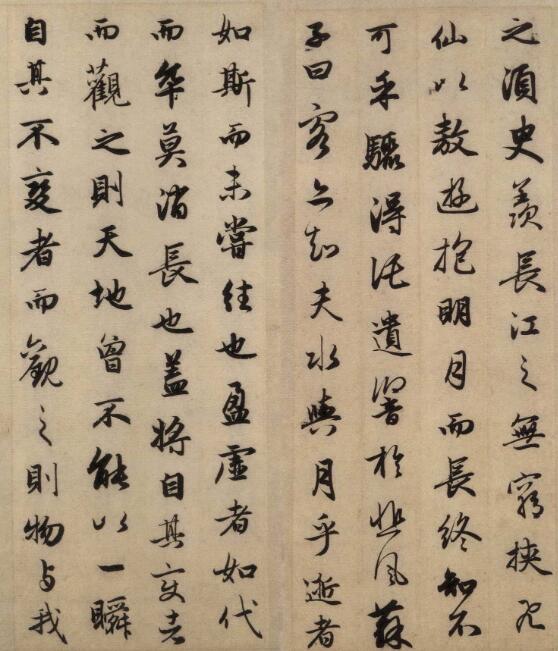 之須臾羨長江之無窮挾飛
仙以敖遊抱明月而長終知不
可乎驟得託遺響於悲風蘇
子曰客亦知夫水與月乎逝者
如斯而未嘗往也盈虛者如代
而卒莫消長也蓋將自其變者
而觀之則天地曾不能以一瞬
自其不變者而觀之則物与我